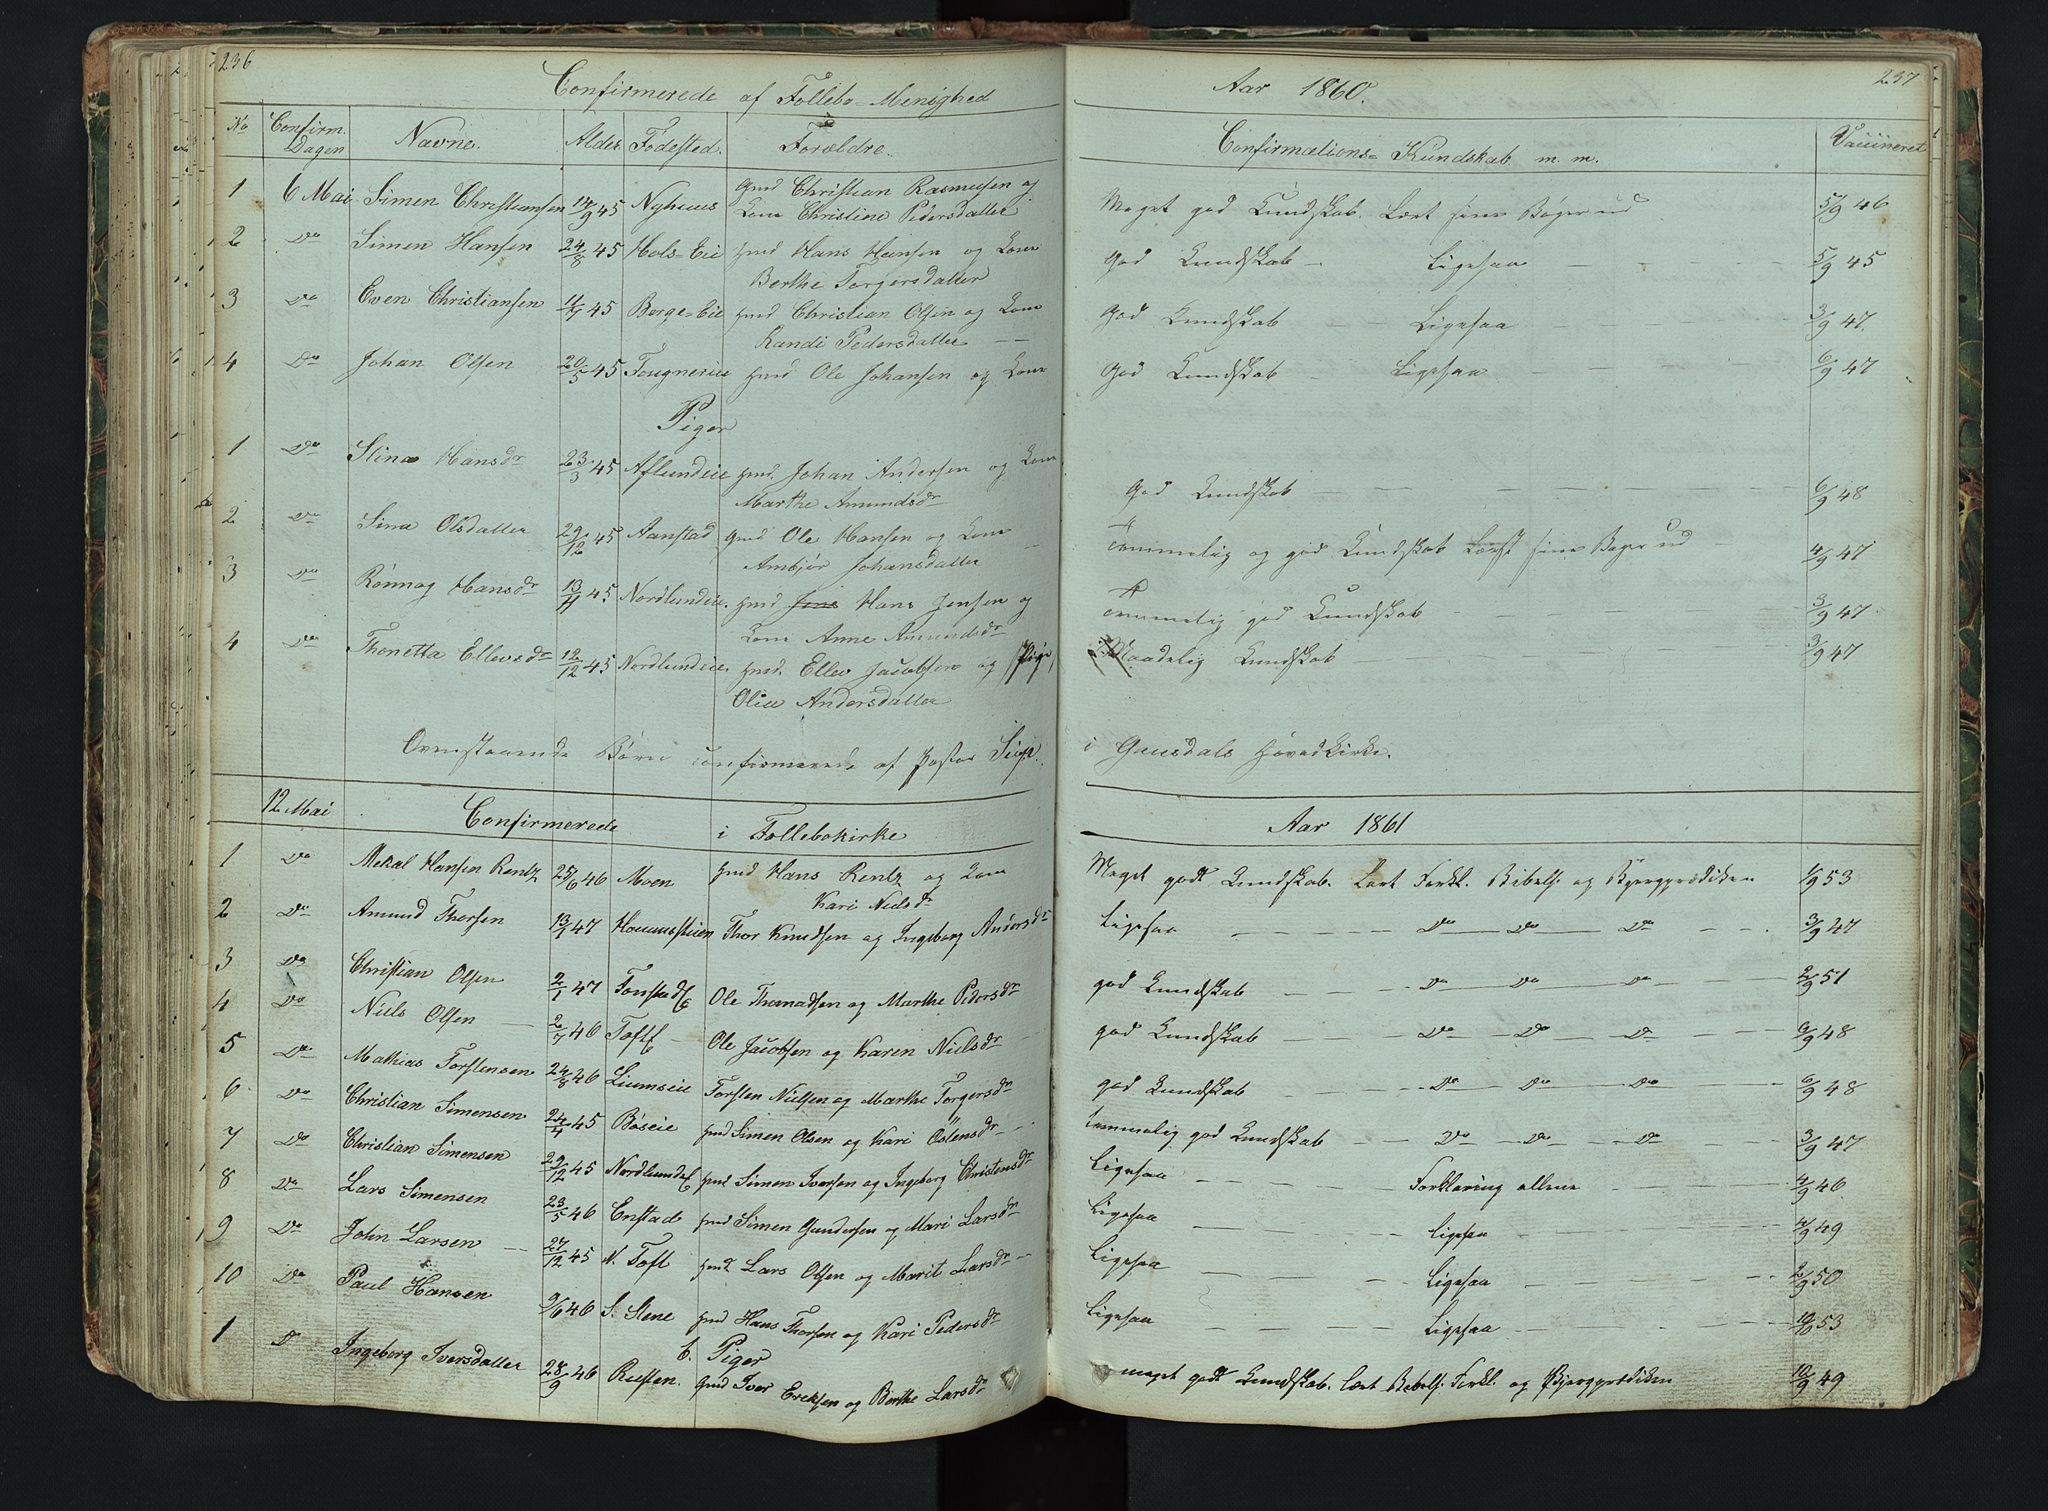 236
Confirmerede af Follebo-Menighed
No Confirm. Dagen Navne. Alder Fødested. Forældre.
1 6 Mai Simen Christiansen 14/9 45 Nyhuus Gmd Christian Rasmusen og
Kone Christine Pedersdatter
2 Do Simen Hansen 24/8 45 Hols-Eie Hmd Hans Hansen og Kone
Berthe Torgersdatter
3 Do Even Christiansen 11/7 45 Berge-Eie Hmd Christian Olsen og Kone
Randi Pedersdatter
4 Do Johan Olsen 20/5 45 Fougnereie Hmd Ole Johansen og Kone
Piger
1 Do Stina Hansdr 23/3 45 Aflundeie Hmd. Johan Andersen og Kone
Marthe Amundsdr
2 Do Sina Olsdatter 29/12 45 Aanstad Gmd Ole Hansen og Kone
Ambjør Johansdatter
3 Do Rønnog Hansdr 13/11 45 Nordlundeie. Hmd Jens Hans Jensen og
Kone Anne Amundsdr
4 Do Thonetta Ellevsdr 12/12 45 Nordlundeie Hmd. Ellev Jacobsen og Pige,
Olia Andersdatter
Ovenstaaende Børn confirmerede af Pastor
12 Mai Confirmerede i Follebokirke
1 Do Mekal Hansen Rentz 25/6 46 Moen Hmd Hans Rentz og Kone
Kari Nielsdr
2 Do Amund Thorsen 13/1 47 Thor Knudsen og Ingeborg Andersdr
3 Do Christian Olsen 2/1 47 Ole Thomadsen og Marthe Pedersdr
4 Do Niels Olsen 2/7 46 Ole Jacobsen og Karen Nielsdr
5 Do Mathias Torstensen 24/8 46 Liumseie Torsten Nielsen og Marthe Torgersdr
6 Do Christian Simensen 24/4 45 Bøeie Hmd Simen Olsen og Kari Östensdr
7 Do Christian Simensen 29/12 45 Hmd Simen Iversen og Ingeborg Christensdr
8 Do Lars Simensen 23/5 46 Enstad Hmd Simen Gundersen og Mari Larsdr
9 Do John Larsen 27/12 45 N. Toft Hmd Lars Olsen og Marit Larsdr
10 Do Paul Hansen 9/6 46 S. Stene Hmd Hans Thorsen og Kari Pedersdr
b. Piger
1 Do Ingeborg Iversdatter 28/9 46 Rusten. Gmd Iver Ericksen og Berthe Larsdr
237
Aar 1860.
Confirmations-Kundskab m. m. Vaccineret
Meget god Kundskab. Læst sine Bøger ud 5/9 46
God Kundskab Ligesaa 5/9 45
God Kundskab Ligesaa 3/9 47.
God Kundskab Ligesaa 6/9 47
God Kundskab 6/9 48
Temmelig og god Kundskab Læst sine Bøger ud 4/9 47
Temmelig god Kundskab 3/9 47
Maadelig Kundskab 3/9 47
i Gausdals Hovedkirke.
Aar 1861
Meget godt Kundskab. Læst Forkl. Bibelh. og Bjergprædiken 1/9 53
Ligesaa Do Do Do 3/9 47
god Kundskab Do Do Do 2/9 51
god Kundskab Do Do Do 6/9 48
god Kundskab Do Do Do 6/9 48
temmelig god Kundskab Do Do Do 3/9 47
Ligesaa Forklaring allene 4/9 46
Ligesaa Ligesaa 4/9 49
Ligesaa Ligesaa 2/9 50
Ligesaa Ligesaa 53
meget godt Kundskab. læst Bibelh. Forkl. og Bjergprædiken 12/9 49